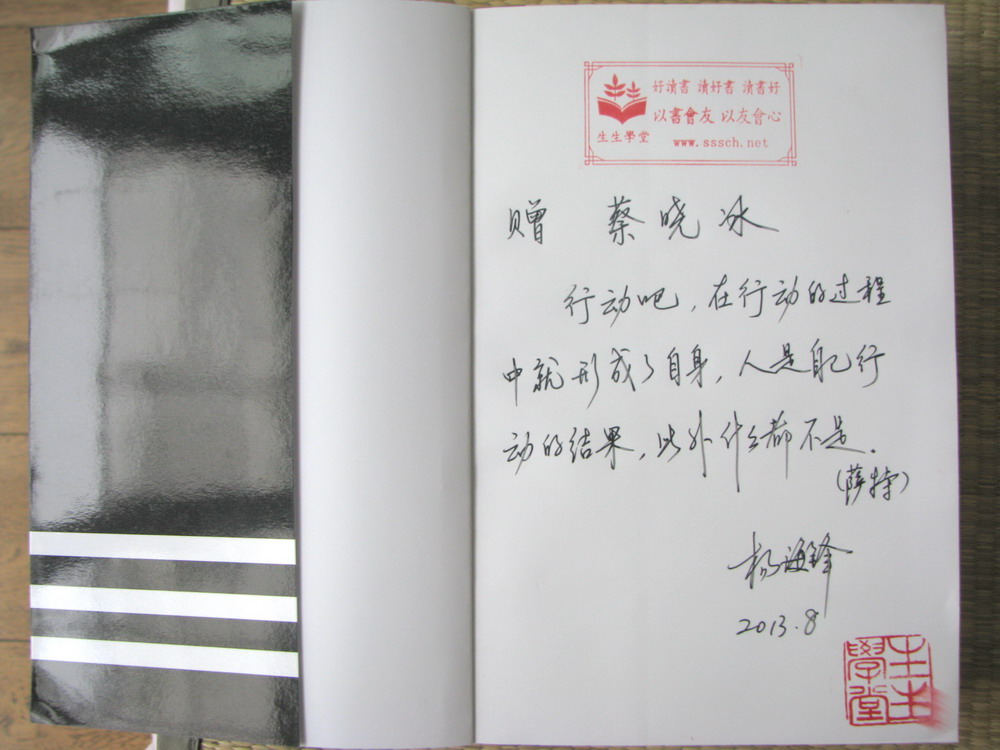 好读書 读好書 读書好
以書會友 以友會心
生生學堂
www.sssch.net
赠 蔡晓冰
行动吧，在行动的过程
中就形成了自身，人是自己行
动的结果，此外什么都不是．
（萨特）
杨海峰
2013.8
生生
學堂